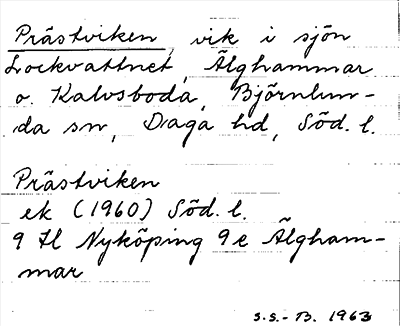 Prästviken, vik i sjön
Lockvattnet, Älghammar
o. Kalvsboda, Björnlun-
da sn, Daga hd, Söd. l.
Prästviken
ek (1960) Söd. l.
9 H Nyköping 9e Älgham-
mar
S.S.-B. 1963